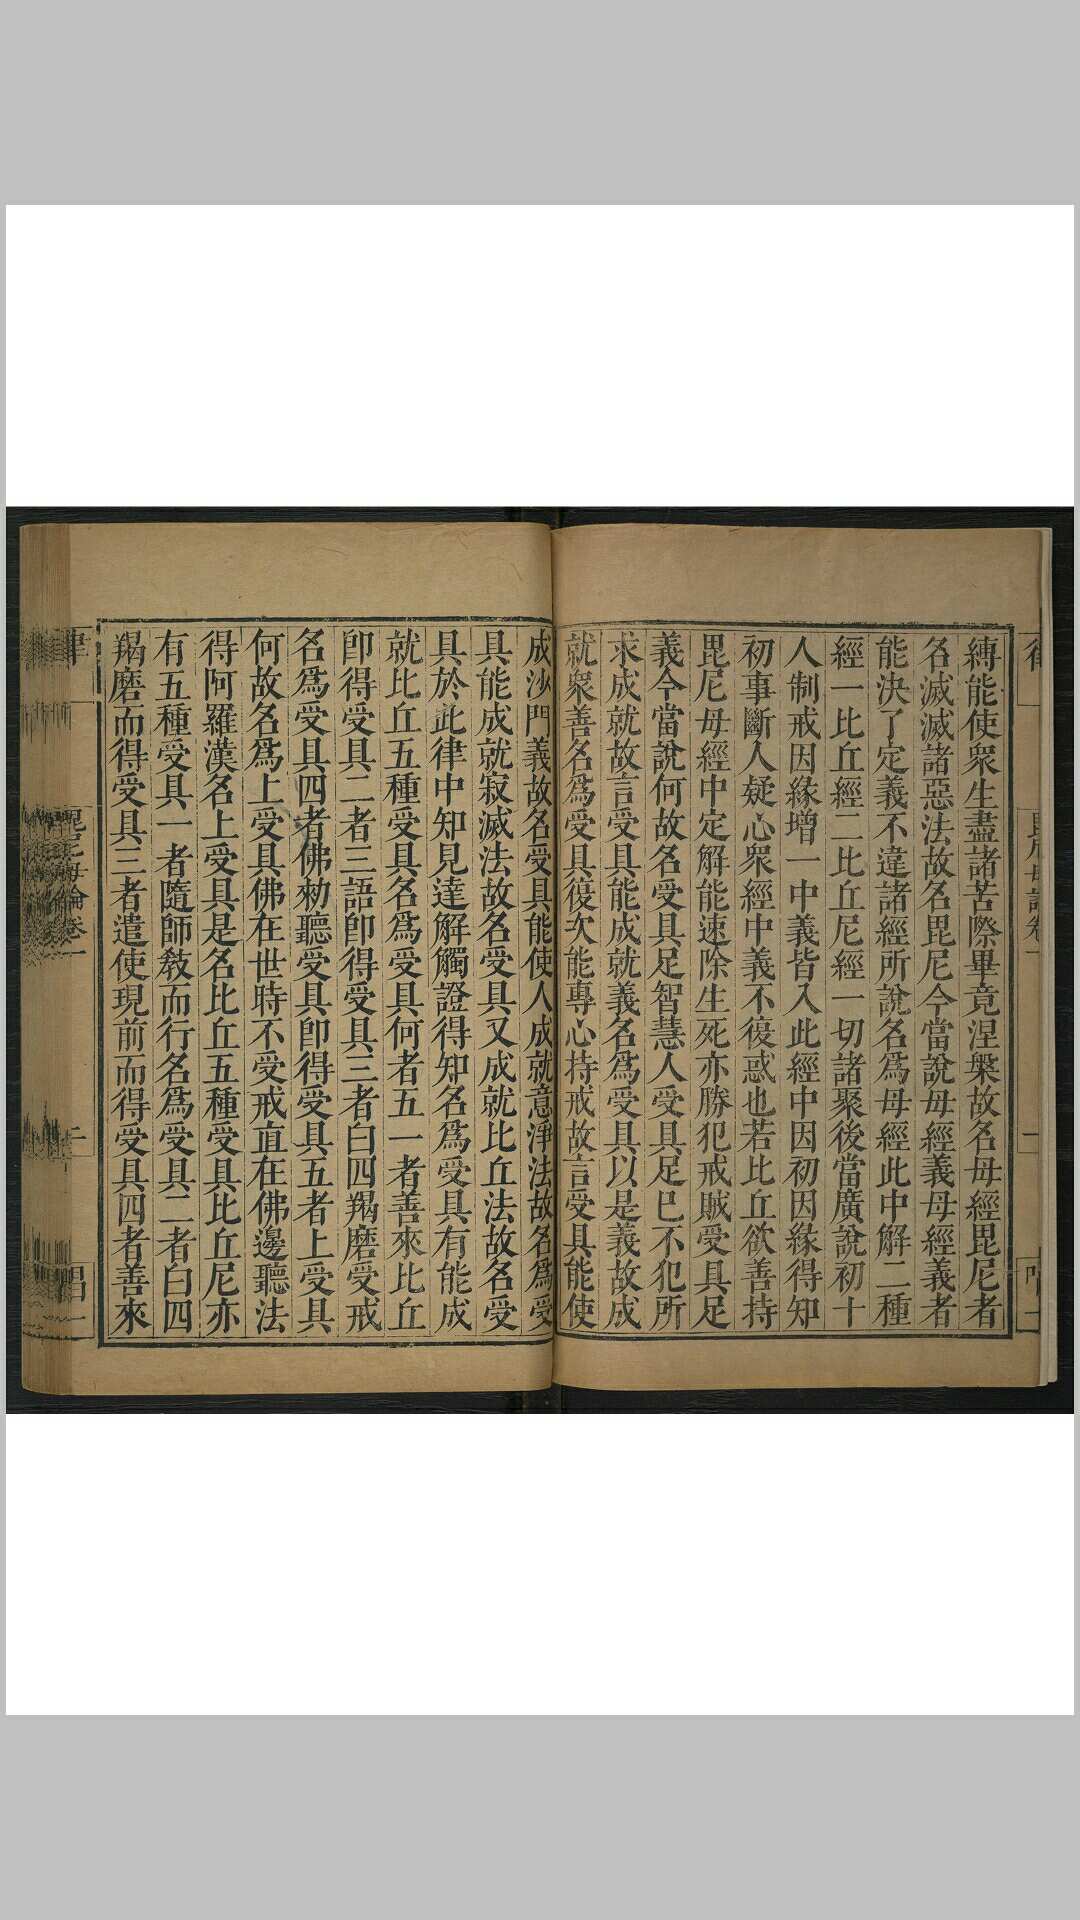 縛能使衆生盡諸苦際畢竟涅槃故名母經毘尼者
名滅滅諸惡法故名毘尼今當說母經義母經義者
能決了定義不違諸經所說名爲母經此中解二種
經一比丘經二比丘尼經一切諸聚後當廣說初十
人制戒因緣增一中義皆入此經中因初因緣得知
初事斷人疑心衆經中義不復惑也若比丘欲善持
毘尼母經中定解能速除生死亦勝犯戒賊受具足
義今當說何故名受具足智慧人受具足已不犯所
求成就故言受具能成就義名爲受具以是義故成
就衆善名爲受具復次能專心持戒故言受具能使
成沙門義故名受具能使人成就意淨法故名爲受
具能成就寂滅法故名受具又成就比丘法故名受
具於此律中知見達解觸證得知名爲受具有能成
就比丘五種受具名爲受具何者五一者善來比丘
卽得受具二者三語卽得受具三者白四羯磨受戒
名爲受具四者佛勑聽受具卽得受具五者上受具
何故名爲上受具佛在世時不受戒直在佛邊聽法
得阿羅漢名上受具是名比丘五種受具比丘尼亦
有五種受具一者隨師敎而行名爲受具二者白四
羯磨而得受具三者遣使現前而得受具四者善來
律
毘尼母論卷一
二